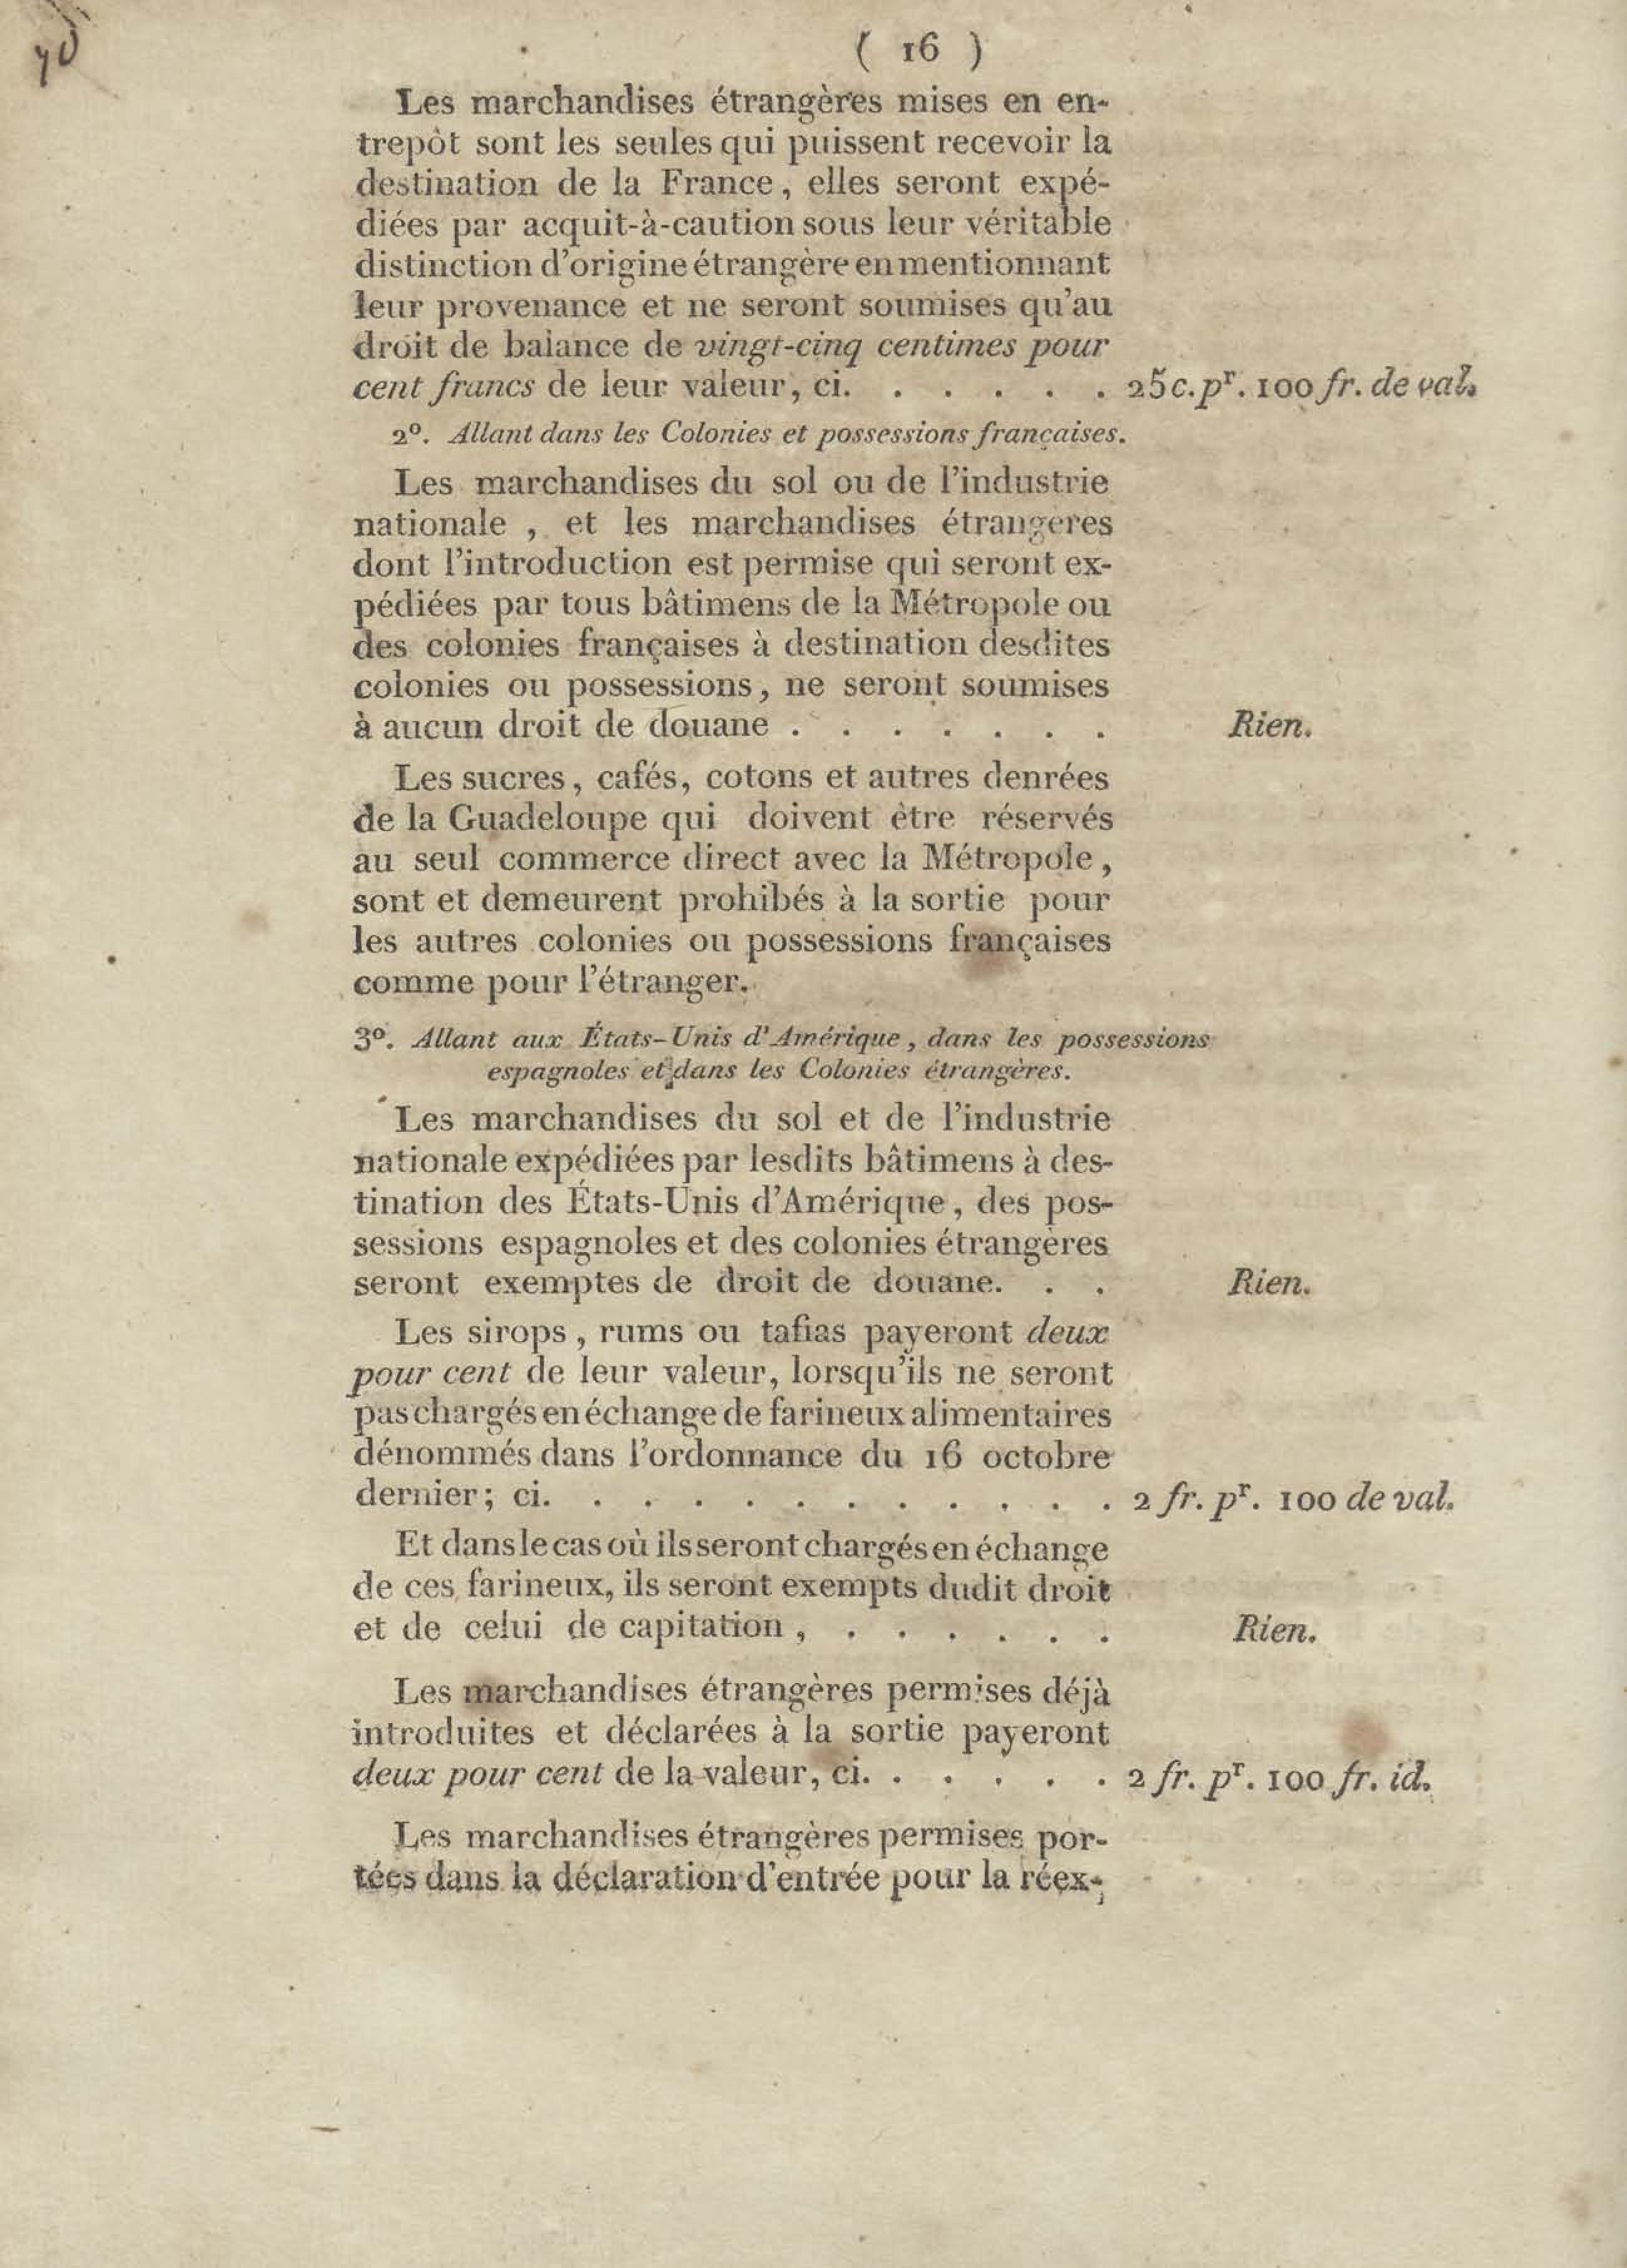 ( 16 )
Les marchandises étrangères mises en en-
trepôt sont les seules qui puissent recevoir la
destination de la France, elles seront expé-
diées par acquit-à-caution sous leur véritable
distinction d'origine étrangère en mentionnant
leur provenance et ne seront soumises qu'au
droit de balance de vingt-cinq centimes pour
cent francs de leur valeur, ci. . . . . . 25 c. pr. 100 fr. de val.
2º. Allant dans les Colonies et possessions françaises.
Les marchandises du sol ou de l'industrie
nationale , et les marchandises étrangères
dont l'introduction est permise qui seront ex-
pédiées par tous bâtimens de la Métropole ou
des colonies françaises à destination desdites
colonies ou possessions, ne seront soumises
à aucun droit de douane . . . . . . . Rien.
Les sucres, cafés, cotons et autres denrées
de la Guadeloupe qui doivent être réservés
au seul commerce direct avec la Métropole,
sont et demeurent prohibés à la sortie pour
les autres colonies ou possessions françaises
comme pour l'étranger.
3º. Allant aux États-Unis d'Amérique, dans les possessions
espagnoles et dans les Colonies étrangères.
Les marchandises du sol et de l'industrie
nationale expédiées par lesdits bâtimens à des-
tination des États-Unis d'Amérique, des pos-
sessions espagnoles et des colonies étrangères
seront exemptes de droit de douane. . . Rien.
Les sirops, rums ou tafias payeront deux
pour cent de leur valeur, lorsqu'ils ne seront
pas chargés en échange de farineux alimentaires
dénommés dans l'ordonnance du 16 octobre
dernier; ci. . . . . . . . . . . . 2 fr. pr. 100 de val.
Et dans le cas où ils seront chargés en échange
de ces farineux, ils seront exempts dudit droit
et de celui de capitation , . . . . . . Rien.
Les marchandises étrangères permises déjà
introduites et déclarées à la sortie payeront
deux pour cent de la valeur, ci. . . . . . 2 fr. pr. 100 fr. id.
Les marchandises étrangères permises por-
tées dans la déclaration d'entrée pour la réex-